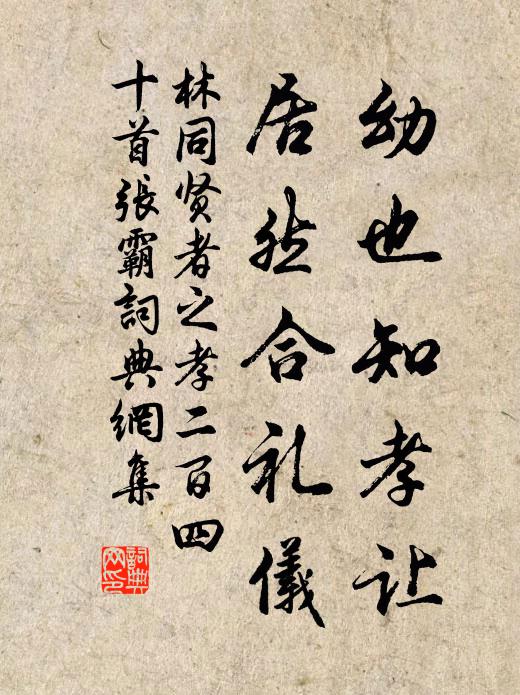 幼也知孝让
居然合礼儀
林同贤者之孝二百四
十首張霸詞典網集
詞典
网印